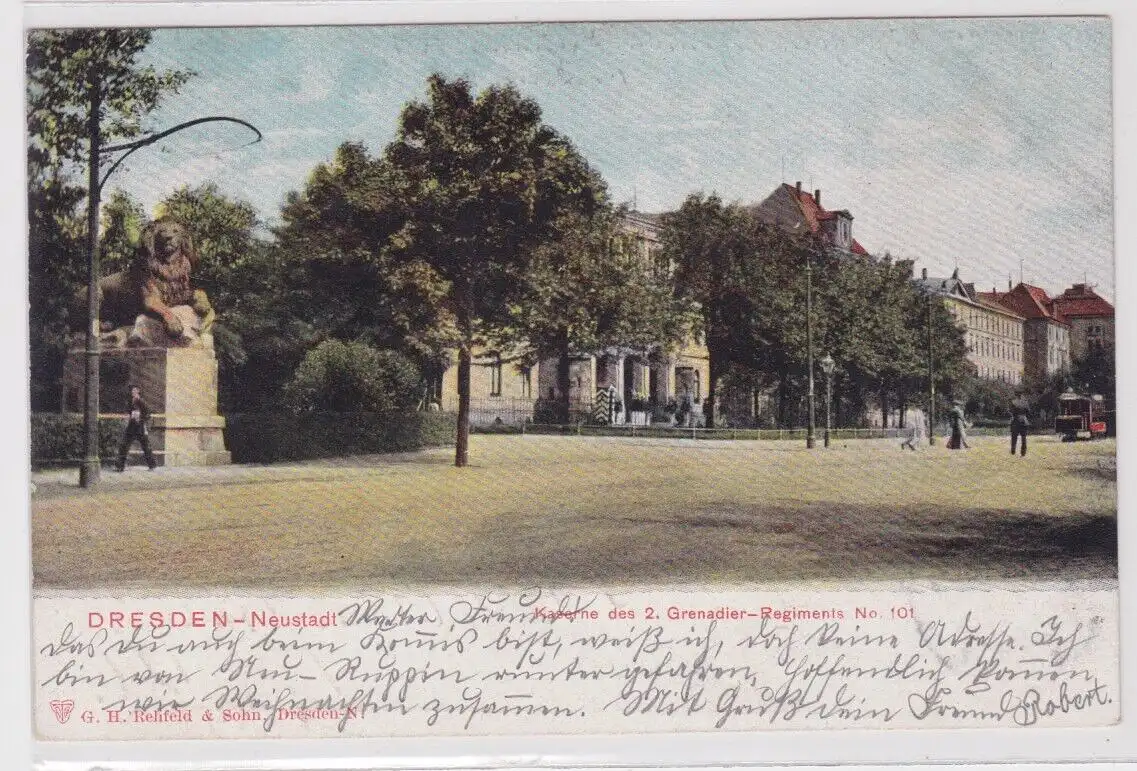 DRESDEN-Neustadt
Kaserne des 2. Grenadier-Regiments No. 101
Werter Freund
das du auch beim Komis bist, weiß ich, doch keine Adresse. Ich
bin von Neu-Ruppin runter gefahren, hoffendlich kommen,
wir Weihnachtn zusammen. Mit Gruß dein Freund Robert.
G. H. Rehfeld & Sohn, Dresden-N.